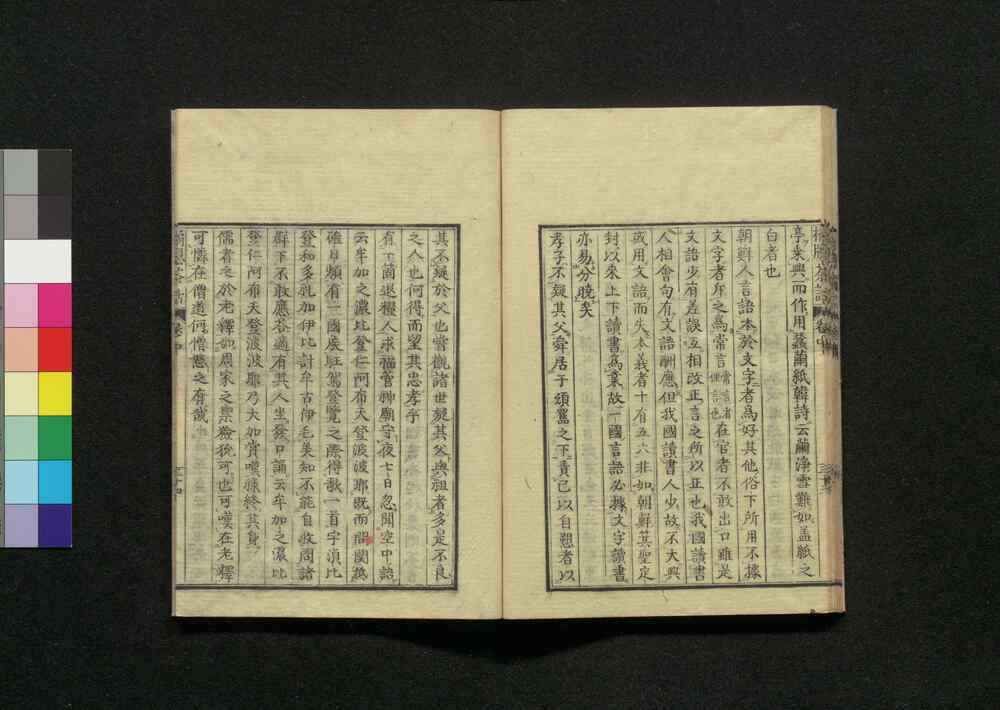 亭来興而作用蠶繭紙韓詩云繭淨雪難如蓋紙之
白者也
朝鮮人言語本於文字者為好其他俗下所用不據
文字者斥之為常言常言者俚言也在官者不敢出口雖是
文語少有差誤互相改正言之所以正也我國讀書
人相會句有文語酬應但我國讀書人少故不大興
或用文語而失本義者十有五六非如朝鮮箕聖定
封以来上下讀書為業故一國言語必據文字讀書
亦易分曉矣
孝子不疑其父舜居于頑嚚之下責己以自艱者以
其不疑於父也嘗觀諸世疑其父與祖者多是不良
之人也何得而望其忠孝乎
有一箇退糧人求福管神廟守夜七日忽聞空中語
云牟加之濃比登仁阿布天登波波耶既而開
確日頬有一國侯駐駕登覽之際得歌一首字湏比
登和多礼加伊比計牟古伊毛美知不能自收問諸
群下不敢應答適有其人坐發口誦云牟加之濃比
登仁阿布天登波波耶乃大加賞嘆祿終其身
儒者之於老釋如周家之禦獫狁可也可嘆在老釋
可憐在僧道何憎惡之有哉